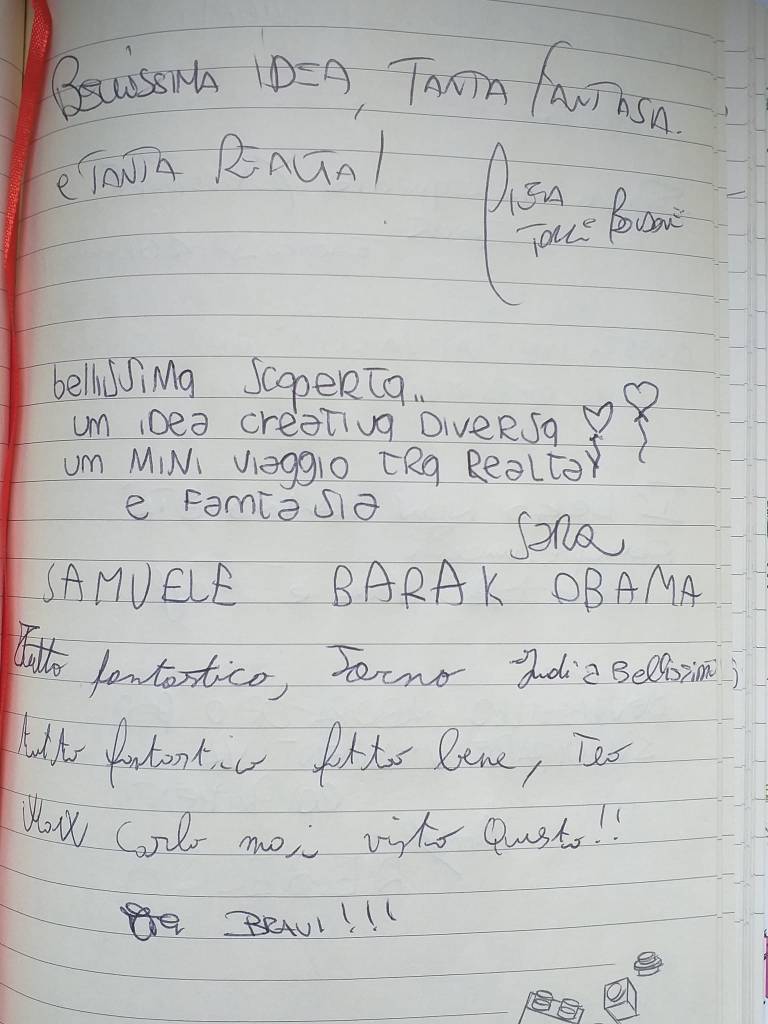 BELLISSIMA IDEA, TANTA FANTASIA.
e TANTA REALTA!
bellissima scoperta..
um idea creativa Diversa
um MINI viaggio tra Realta
e Famtasia
Sara
SAMUELE BARAK OBAMA
Tutto fantastico, Torno Bellissimi
tutto fantastico fatto bene, Teo
Max Carlo mai visto Questo!!
BRAVI!!!